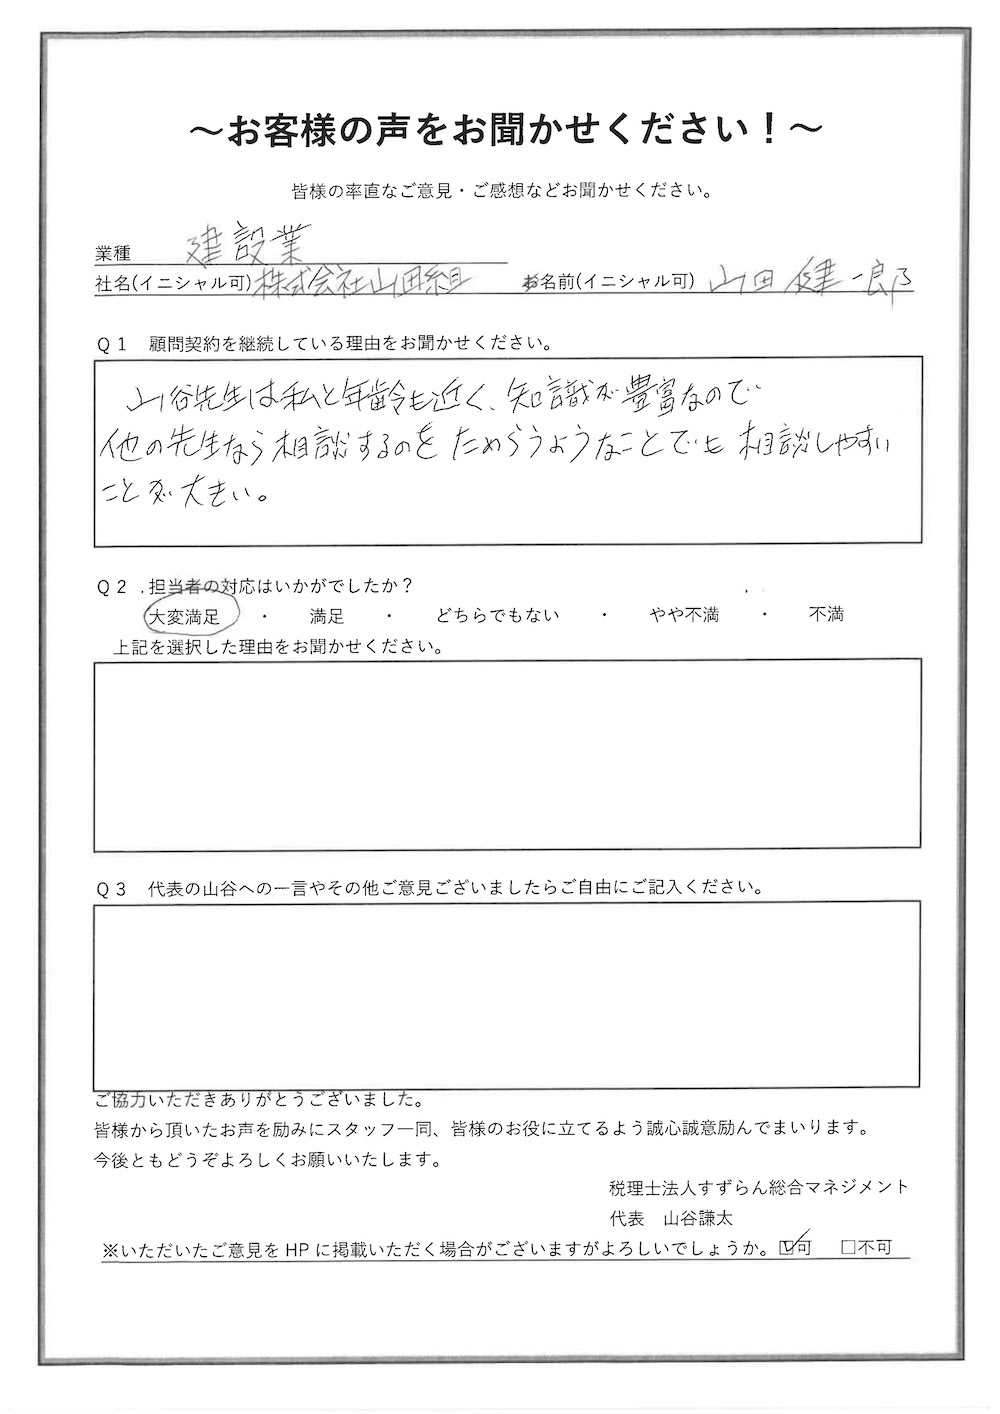 ～お客様の声をお聞かせください！～
皆様の率直なご意見・ご感想などお聞かせください。
業種 建設業
社名(イニシャル可) 株式会社山田組 お名前(イニシャル可) 山田健一郎
Q１ 顧問契約を継続している理由をお聞かせください。
山谷先生は私と年齢も近く、知識が豊富なので
他の先生なら相談するのをためらうようなことでも相談しやすい
ことが大きい。
Q２ 担当者の対応はいかがでしたか？
大変満足 ・ 満足 ・ どちらでもない ・ やや不満 ・ 不満
上記を選択した理由をお聞かせください。
Q３ 代表の山谷への一言やその他ご意見ございましたらご自由にご記入ください。
ご協力いただきありがとうございました。
皆様から頂いたお声を励みにスタッフ一同、皆様のお役に立てるよう誠心誠意励んでまいります。
今後ともどうぞよろしくお願いいたします。
税理士法人すずらん総合マネジメント
代表 山谷謙太
※いただいたご意見をHPに掲載いただく場合がございますがよろしいでしょうか。☑可 □不可